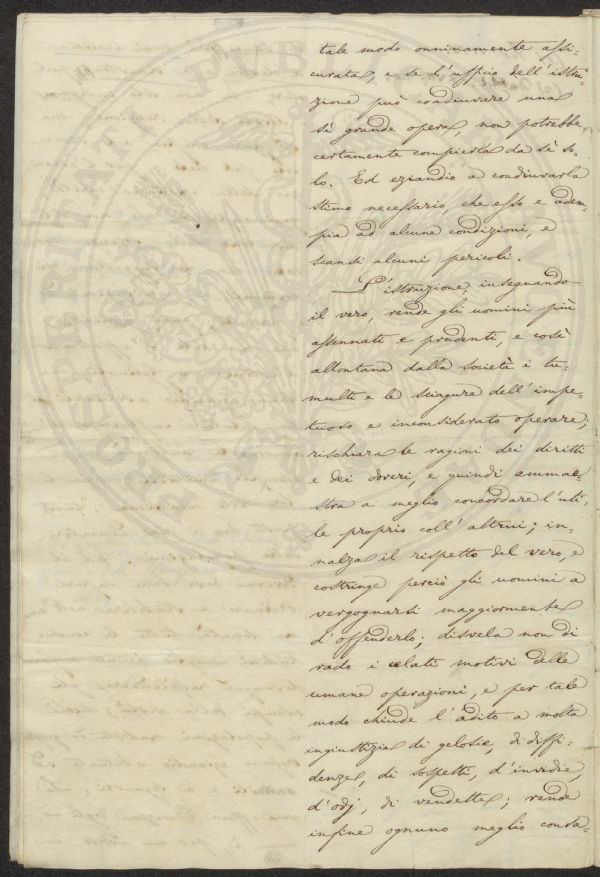 tale modo onninamente assi-
curata, e se l'ufficio dell'istru-
zione può coadiuvare una
sì grande opera, non potrebbe
certamente compierla da sè so-
lo. Ed eziandio a coadiuvarla
stimo necessario, che esso e adem-
pia ad alcune condizioni, e
scansi alcuni pericoli.
L'istruzione, insegnando
il vero, rende gli uomini più
assennati e prudenti, e così
allontana dalla società i tu-
multi e le sciagure dell'impe-
tuoso e inconsiderato operare;
rischiara le ragioni dei diritti
e dei doveri, e quindi ammae-
stra a meglio concordare l'uti-
le proprio coll'altrui; in-
nalza il rispetto del vero, e
costringe perciò gli uomini a
vergognarsi maggiormente
d'offenderlo; disvela non di
rado i celati motivi delle
umane operazioni, e per tale
modo chiude l'àdito a molta
ingiustizia di gelosie, di diffi-
denze, di sospetti, d'invidie,
d'odj, di vendette; rende
infine ognuno meglio consa-